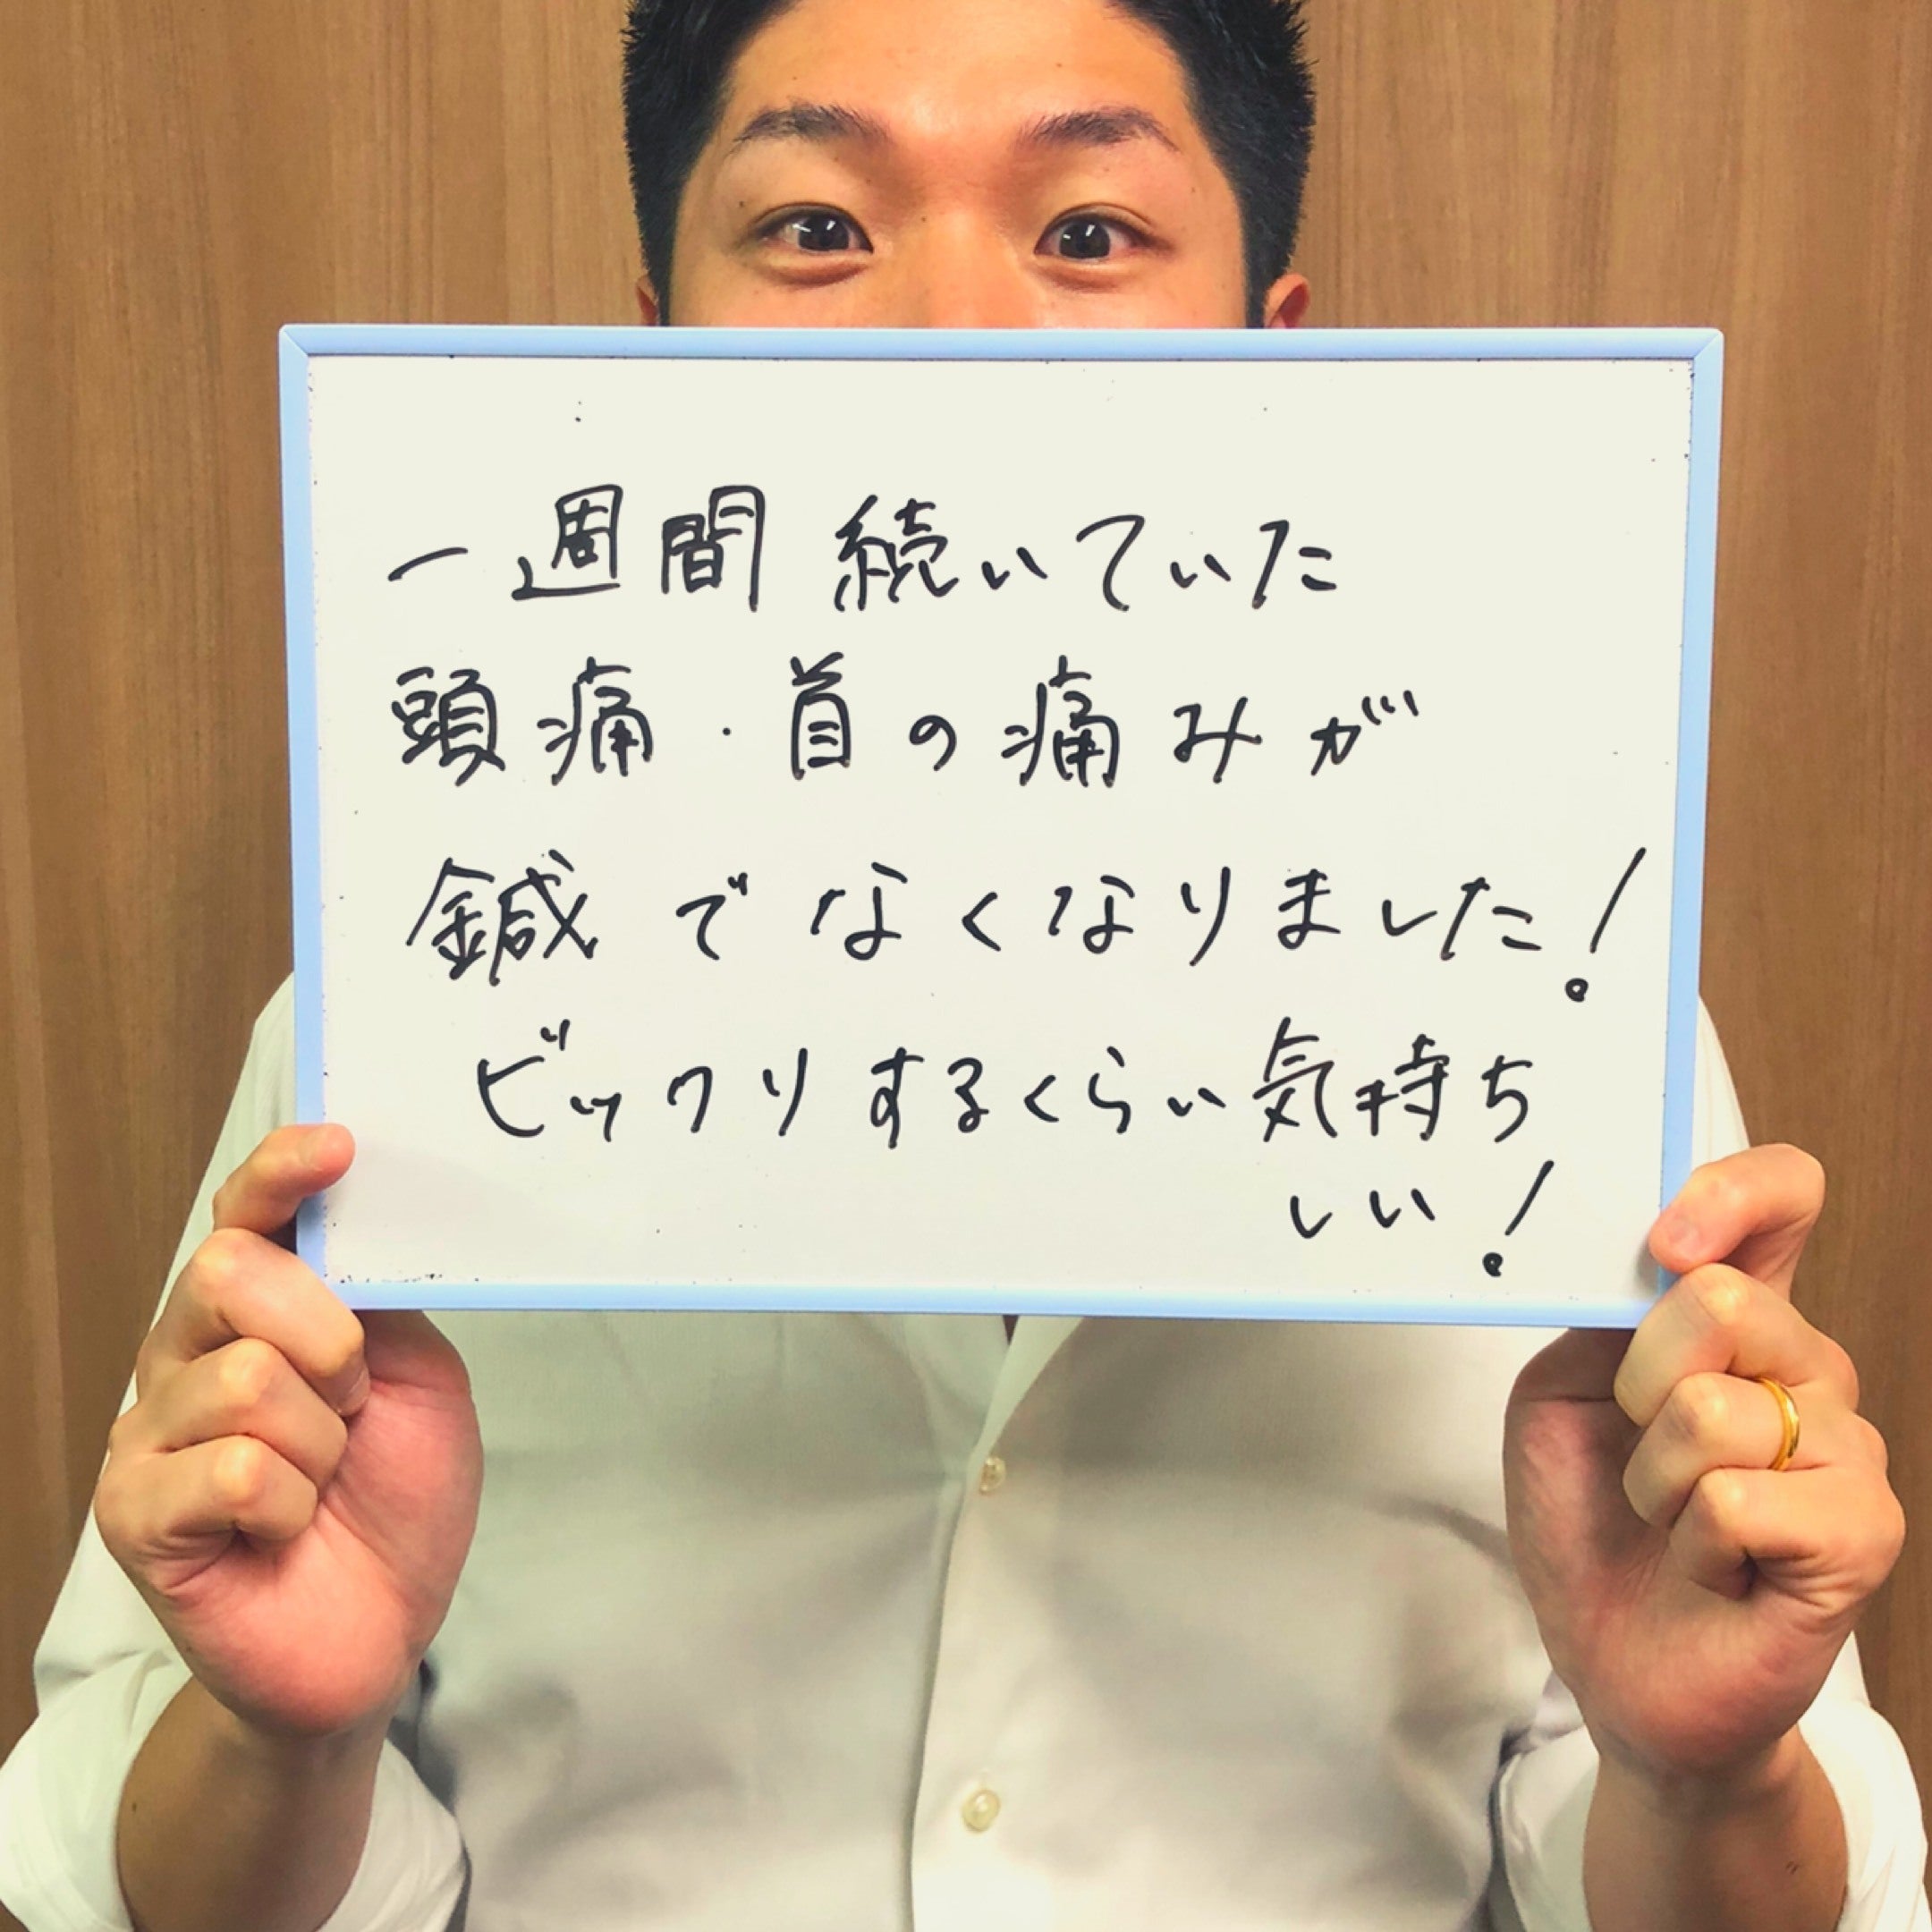 一週間続いていた
頭痛・首の痛みが
鍼でなくなりました!
ビックリするくらい気持ち
しい!